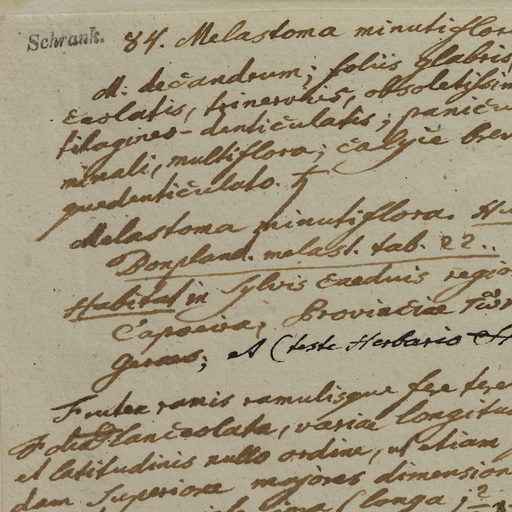 Schrank.
84. Melastoma minutiflor
M: decandrum; foliis glabris,
ceolatis, trinervhis, obsoletissim
tilagineo-denticulatis; panicu
minali, multiflora; calyce brev
quedenticulato. ♄
Melastoma minutiflora. Hu
Bonpland. melast. tab. 22..
Habitat in sylvis caeduis regio
Capoeira, Provinciae
Geraes; et (teste Herbario
Frutex ramis ramulisque fere tere
Folia lanceolata, variae longitud
et latitudinis nullo ordine, ut etiam
dam superiora majores dimension
(longa